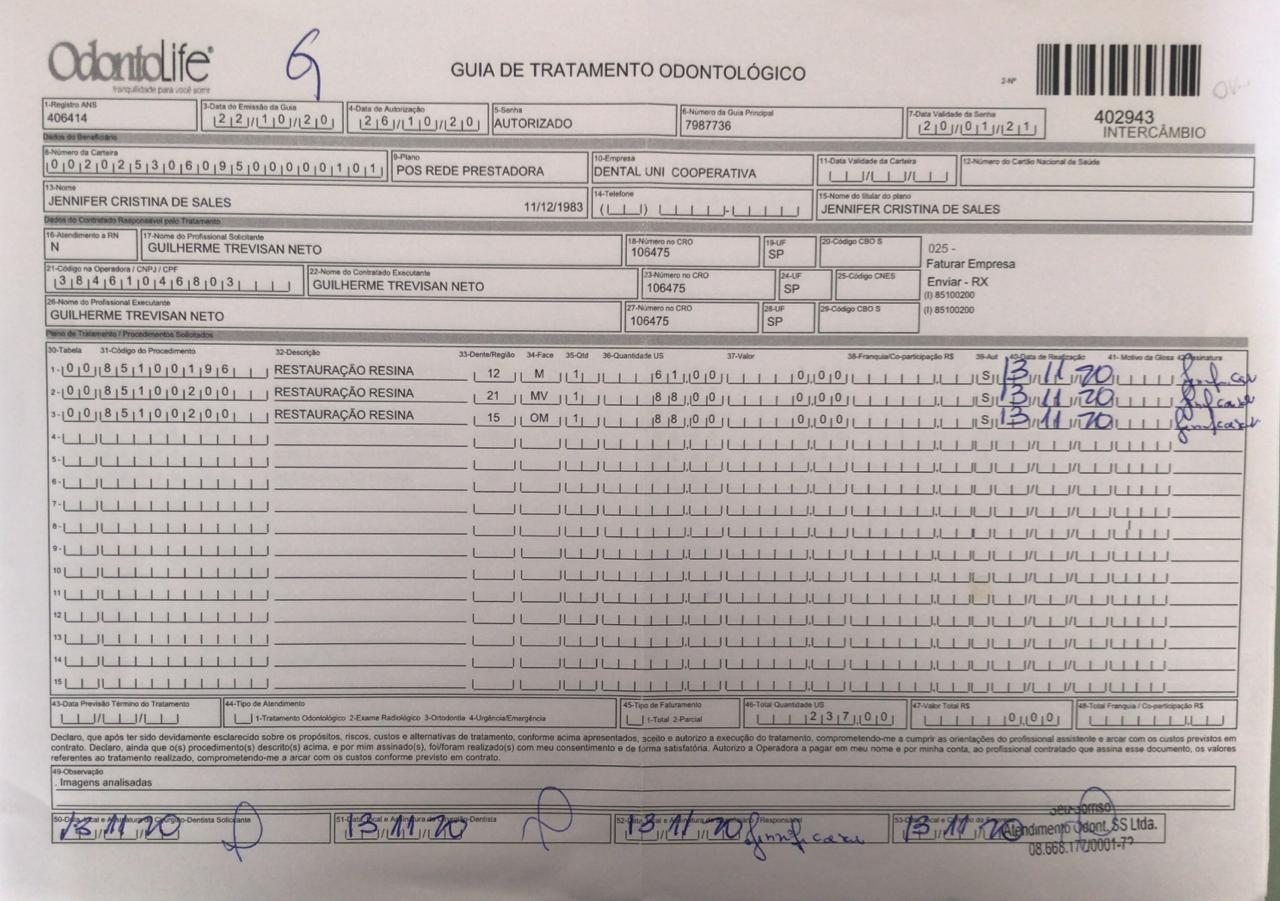 OdontoLife®
tranquilidade para você sorrir
GUIA DE TRATAMENTO ODONTOLÓGICO
2-Nº
402943
INTERCÂMBIO
1-Registro ANS
406414
3-Data de Emissão da Guia
22/10/20
4-Data de Autorização
26/10/20
5-Senha
AUTORIZADO
6-Número da Guia Principal
7987736
7-Data Validade da Senha
20/01/21
Dados do Beneficiário
8-Número da Carteira
00202530609500000101
9-Plano
POS REDE PRESTADORA
10-Empresa
DENTAL UNI COOPERATIVA
11-Data Validade da Carteira
12-Número do Cartão Nacional de Saúde
13-Nome
JENNIFER CRISTINA DE SALES 11/12/1983
14-Telefone
15-Nome do titular do plano
JENNIFER CRISTINA DE SALES
Dados do Contratado Responsável pelo Tratamento
16-Atendimento a RN
N
17-Nome do Profissional Solicitante
GUILHERME TREVISAN NETO
18-Número no CRO
106475
19-UF
SP
20-Código CBO S
025 -
Faturar Empresa
Enviar - RX
(I) 85100200
(I) 85100200
21-Código na Operadora / CNPJ / CPF
38461046803
22-Nome do Contratado Executante
GUILHERME TREVISAN NETO
23-Número no CRO
106475
24-UF
SP
25-Código CNES
26-Nome do Profissional Executante
GUILHERME TREVISAN NETO
27-Número no CRO
106475
28-UF
SP
29-Código CBO S
Plano de Tratamento / Procedimentos Solicitados
30-Tabela 31-Código do Procedimento 32-Descrição 33-Dente/Região 34-Face 35-Qtd 36-Quantidade US 37-Valor 38-Franquia/Co-participação R$ 39-Aut 40-Data de Realização 41- Motivo da Glosa 42-Assinatura
1- 00 85100196 RESTAURAÇÃO RESINA 12 M 1 61,00 0,00 S 13 11 20
2- 00 85100200 RESTAURAÇÃO RESINA 21 MV 1 88,00 0,00 S 13 11 20
3- 00 85100200 RESTAURAÇÃO RESINA 15 OM 1 88,00 0,00 S 13 11 20
4-
5-
6-
7-
8-
9-
10
11
12
13
14
15
43-Data Previsão Término do Tratamento
44-Tipo de Atendimento
1-Tratamento Odontológico 2-Exame Radiológico 3-Ortodontia 4-Urgência/Emergência
45-Tipo de Faturamento
1-Total 2-Parcial
46-Total Quantidade US
237,00
47-Valor Total R$
0,00
48-Total Franquia / Co-participação R$
Declaro, que após ter sido devidamente esclarecido sobre os propósitos, riscos, custos e alternativas de tratamento, conforme acima apresentados, aceito e autorizo a execução do tratamento, comprometendo-me a cumprir as orientações do profissional assistente e arcar com os custos previstos em
contrato. Declaro, ainda que o(s) procedimento(s) descrito(s) acima, e por mim assinado(s), foi/foram realizado(s) com meu consentimento e de forma satisfatória. Autorizo a Operadora a pagar em meu nome e por minha conta, ao profissional contratado que assina esse documento, os valores
referentes ao tratamento realizado, comprometendo-me a arcar com os custos conforme previsto em contrato.
49-Observação
. Imagens analisadas
50-Data, local e Assinatura do Cirurgião-Dentista Solicitante
13 11 20
51-Data, local e Assinatura do Cirurgião-Dentista
13 11 20
13 11 20
13 11 20
Atendimento Odont. SS Ltda.